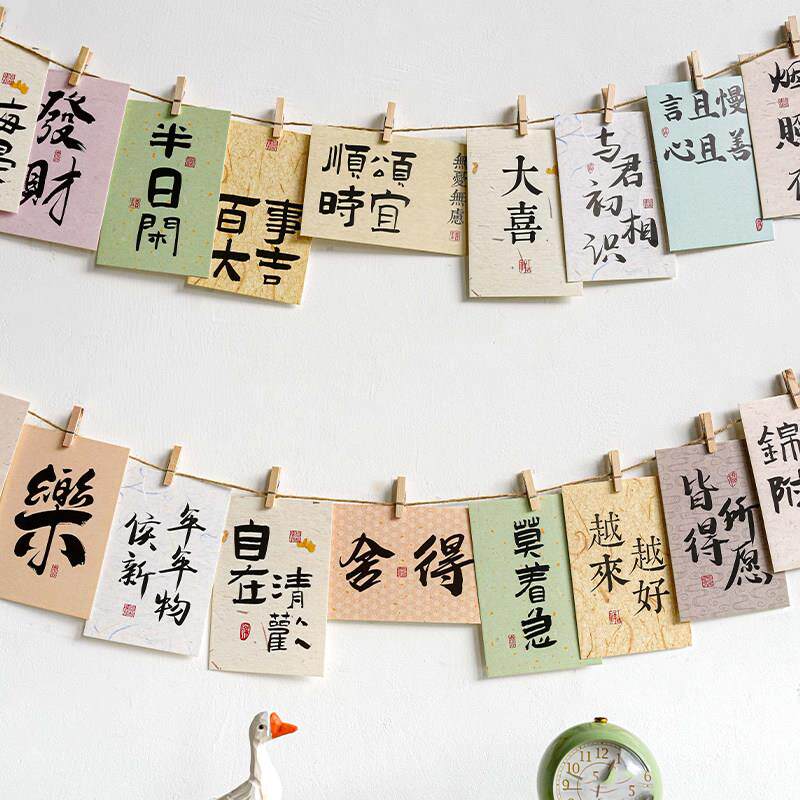 發財
半日閑
百事
大吉
順頌
時宜
無憂無慮
大喜
与君
初相识
言且慢
心且善
樂
年年物
侯新
自在
清歡
舍得
莫着急
越來
越好
所愿
皆得
錦
附